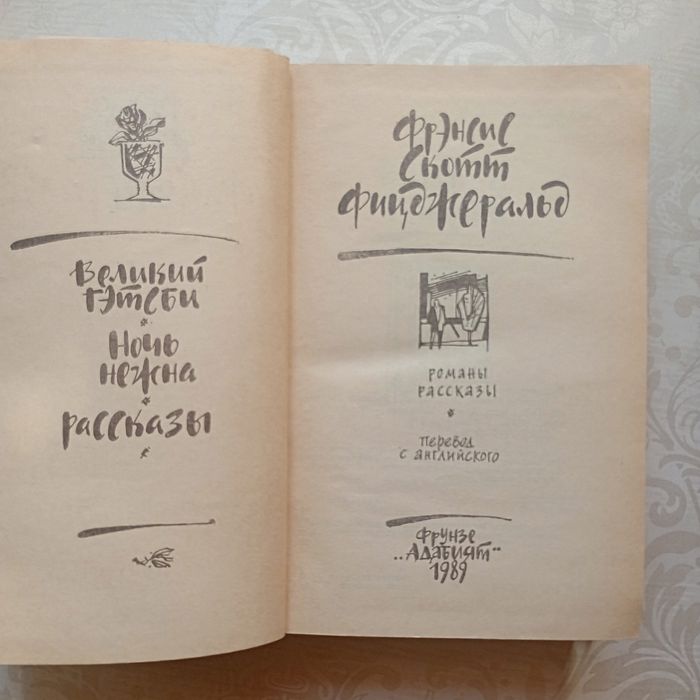 Великий
Гэтсби
Ночь
нежна
рассказы
Фрэнсис
Скотт
Фицджеральд
романы
рассказы
перевод
с английского
Фрунзе
„Адабият“
1989